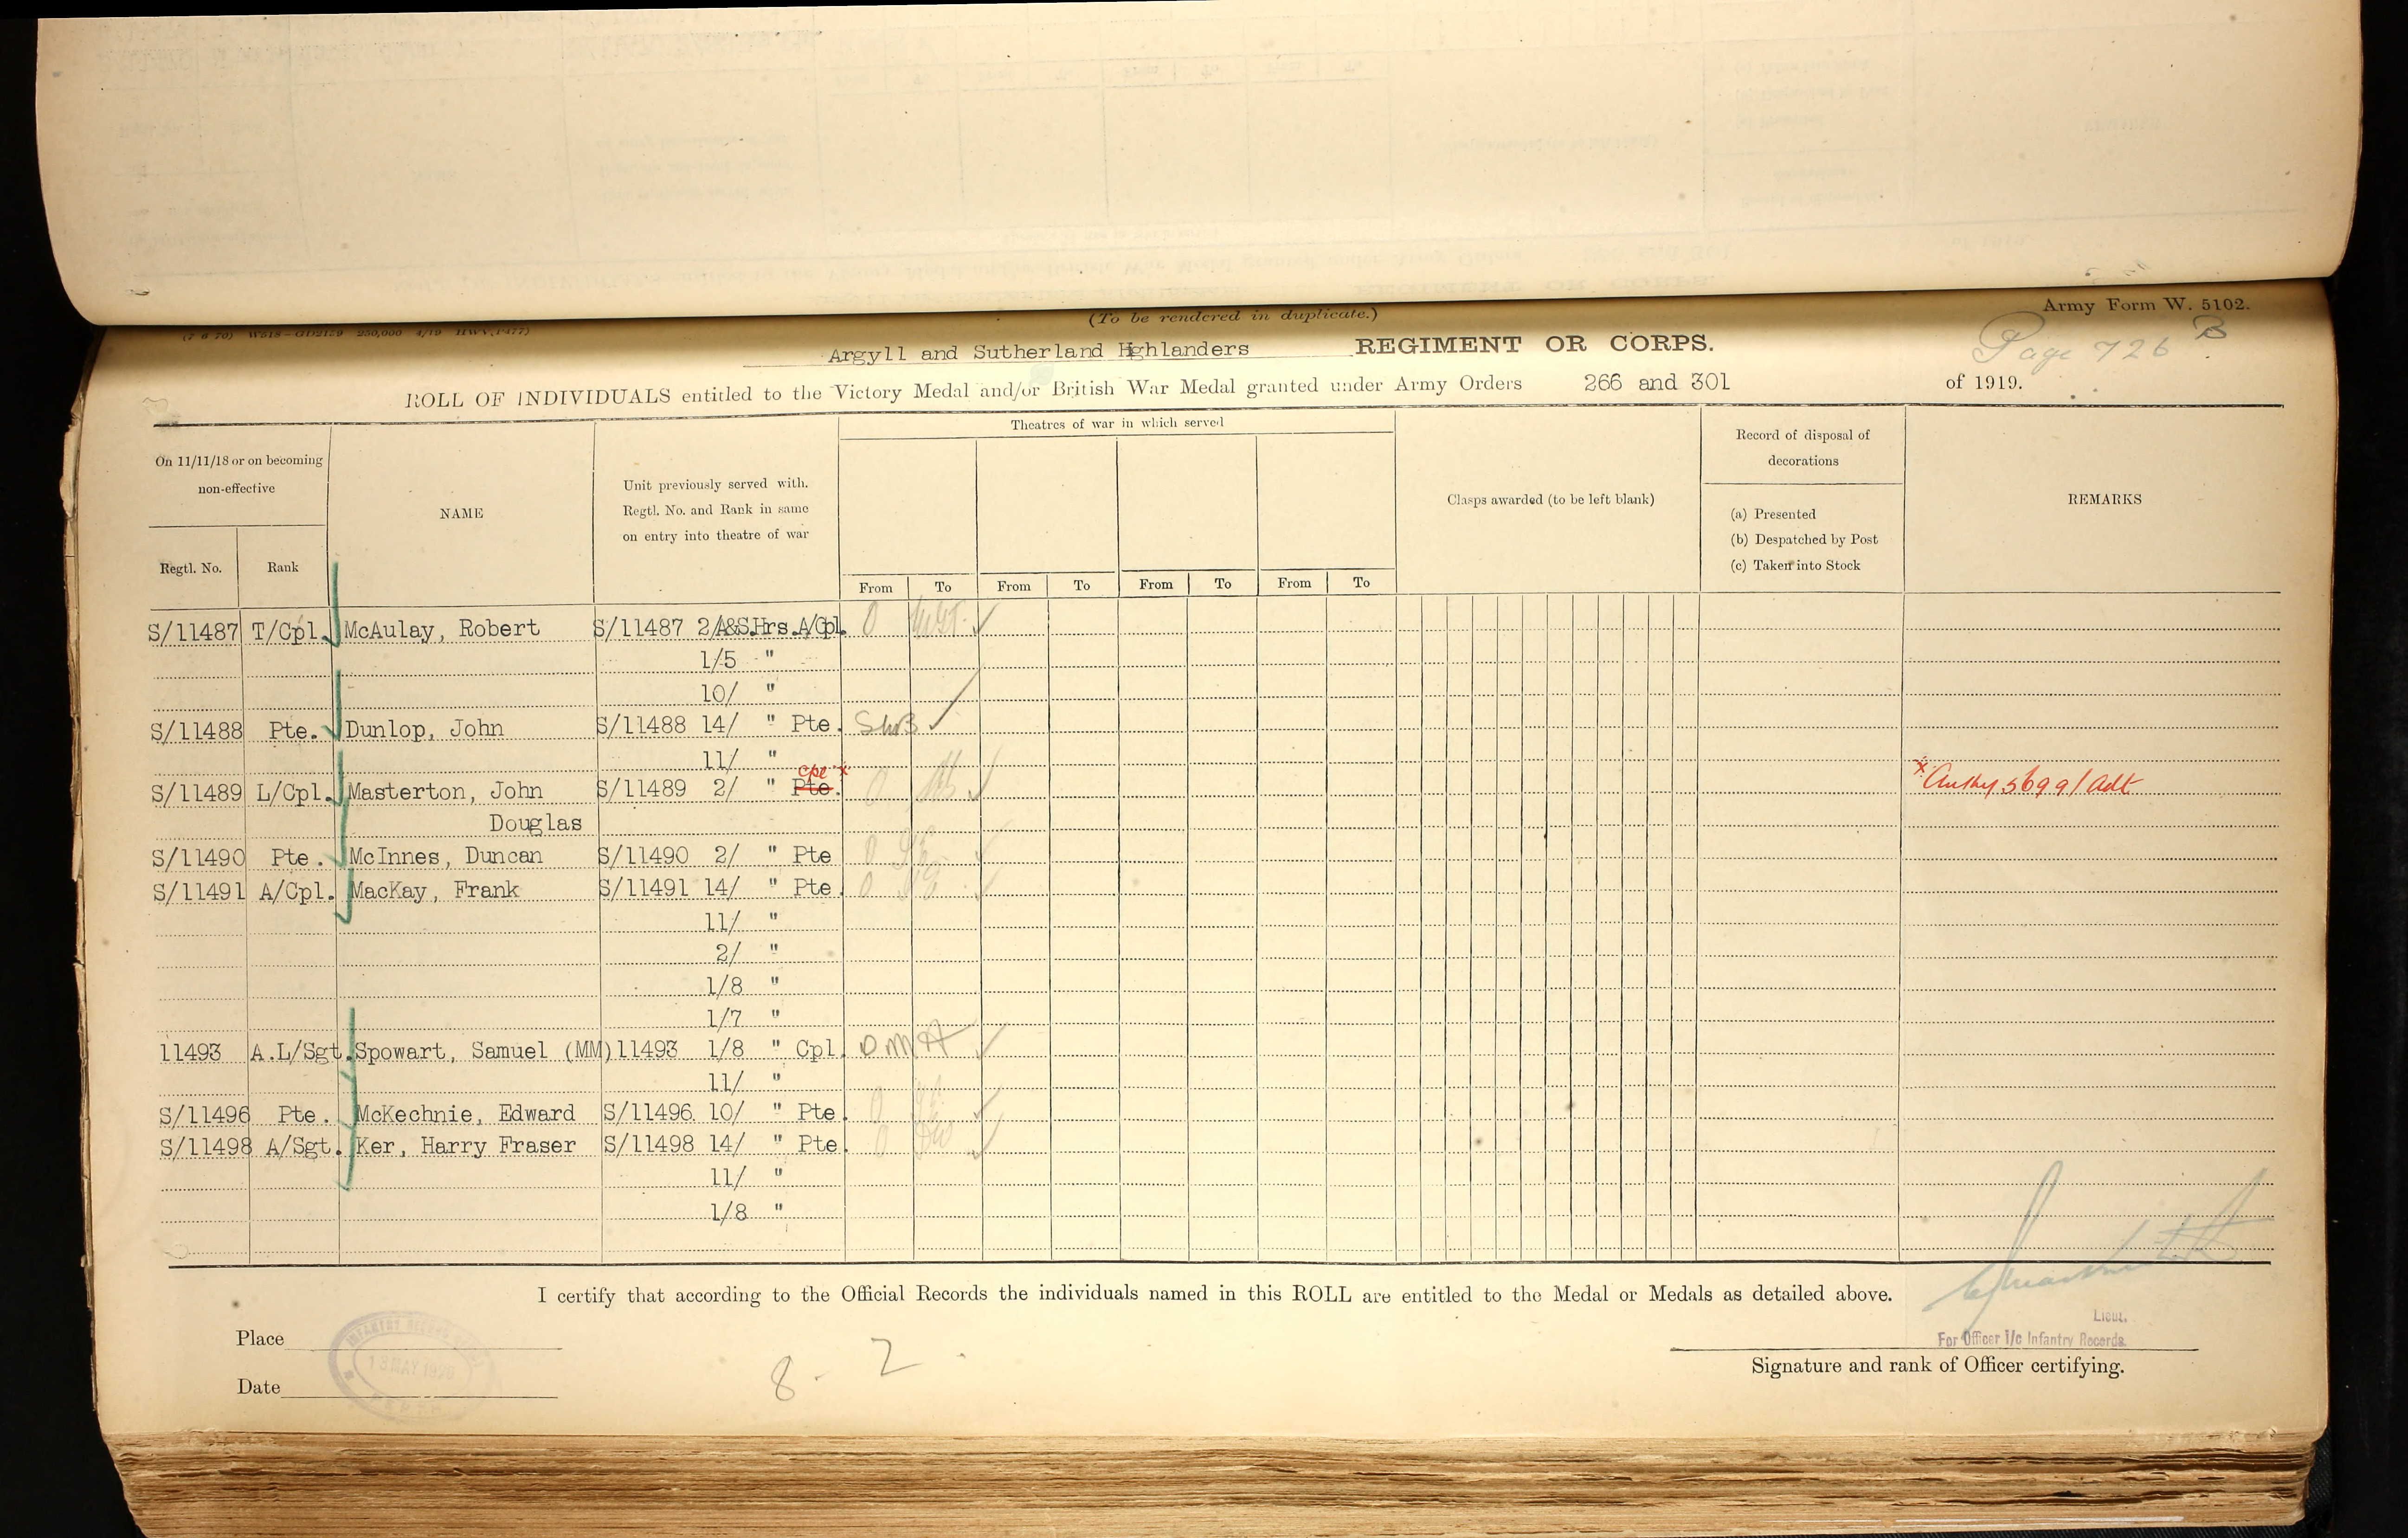 (To be rendered in duplicate.)
Army Form W. 5102.
Page 726 B
Argyll and Sutherland Highlanders REGIMENT OR CORPS.
ROLL OF INDIVIDUALS entitled to the Victory Medal and/or British War Medal granted under Army Orders 266 and 301 of 1919.
On 11/11/18 or on becoming non-effective
Regtl. No.
Rank
NAME
Unit previously served with.
Regtl. No. and Rank in same
on entry into theatre of war
Theatres of war in which served
From To From To From To From To
Clasps awarded (to be left blank)
Record of disposal of
decorations
(a) Presented
(b) Despatched by Post
(c) Taken into Stock
REMARKS
S/11487 T/Cpl. McAulay, Robert S/11487 2/A&S.Hrs.A/Cpl. 0
1/5 "
10/ "
S/11488 Pte. Dunlop, John S/11488 14/ " Pte. SWB
11/ "
Cpl x
S/11489 L/Cpl. Masterton, John S/11489 2/ " Pte. 0 x Authy 5699/Adt
Douglas
S/11490 Pte. McInnes, Duncan S/11490 2/ " Pte 0
S/11491 A/Cpl. MacKay, Frank S/11491 14/ " Pte. 0
11/ "
2/ "
1/8 "
1/7 "
11493 A.L/Sgt. Spowart, Samuel (MM) 11493 1/8 " Cpl.
11/ "
S/11496 Pte. McKechnie, Edward S/11496. 10/ " Pte. 0
S/11498 A/Sgt. Ker, Harry Fraser S/11498 14/ " Pte. 0
11/ "
1/8 "
I certify that according to the Official Records the individuals named in this ROLL are entitled to the Medal or Medals as detailed above.
Lieut.
For Officer i/c Infantry Records.
Signature and rank of Officer certifying.
Place
Date
8 - 2 .